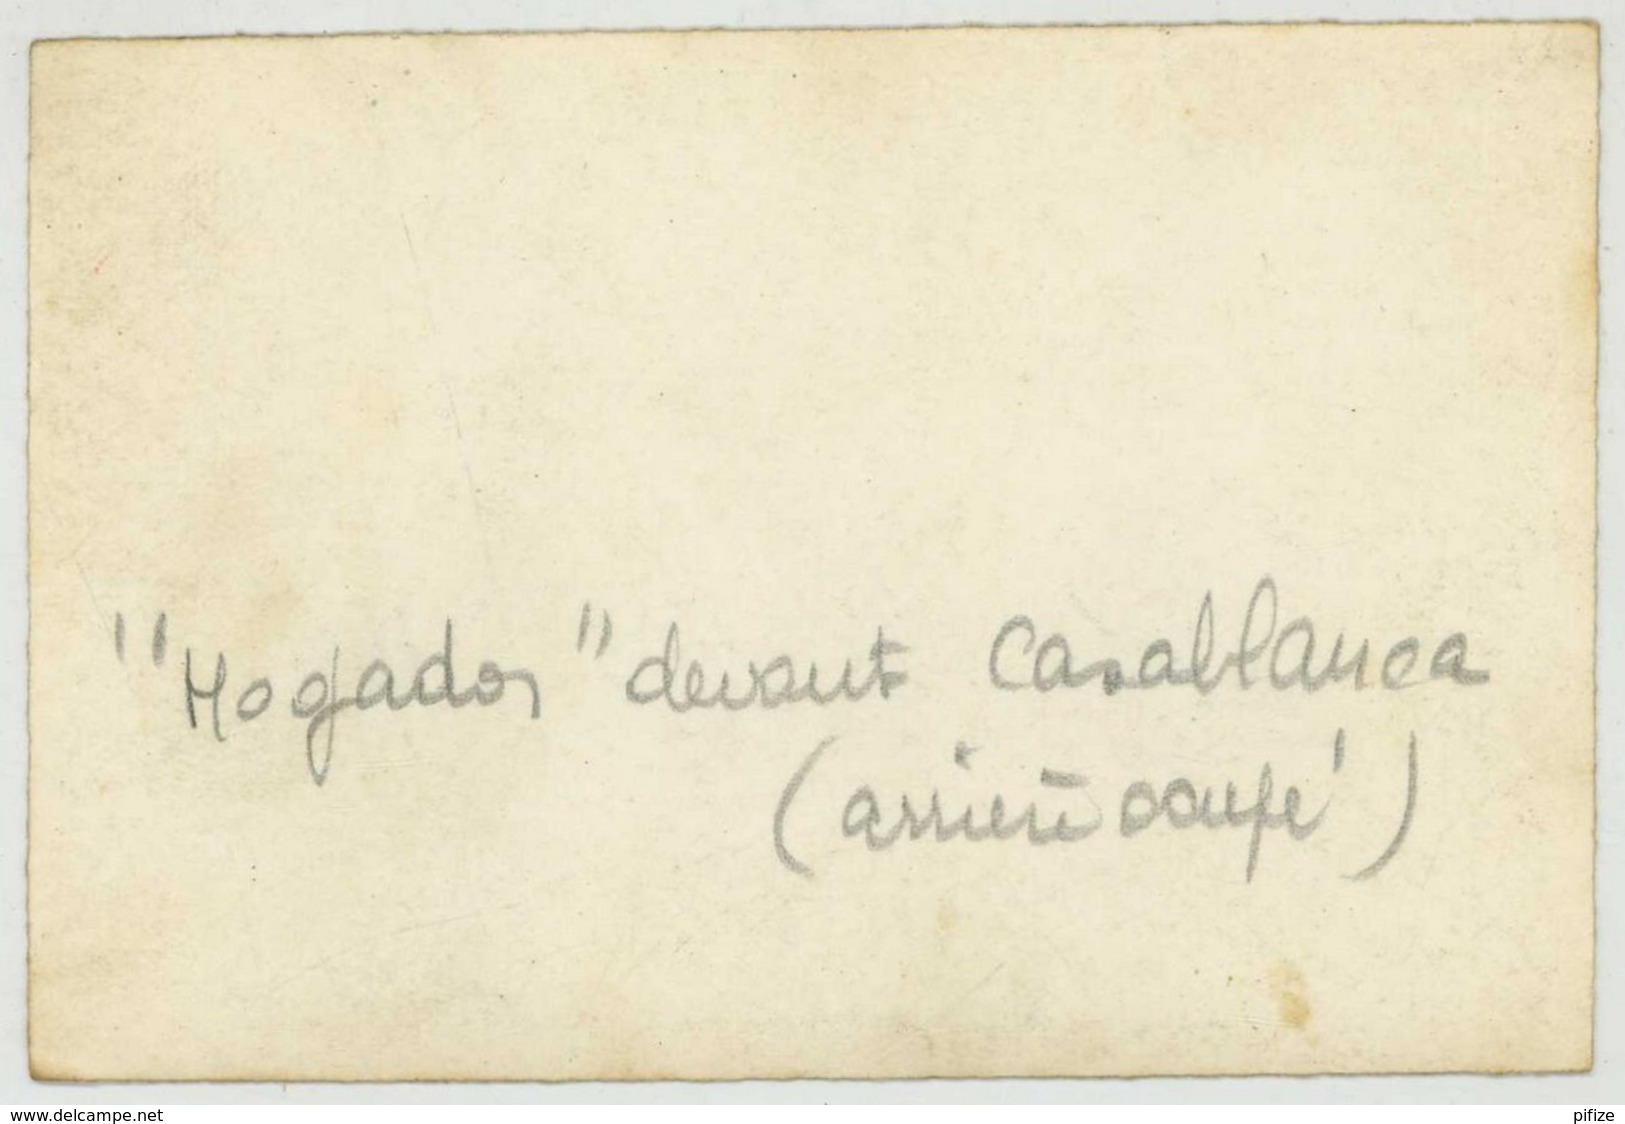 "Mogador" devant Casablanca
(arrière coupé)
www.delcampe.net
pifize